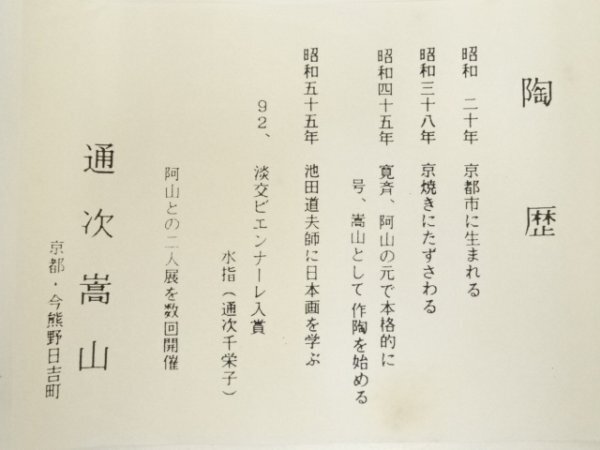 陶歴
昭和 二十年 京都市に生まれる
昭和三十八年 京焼きにたずさわる
昭和四十五年 寛斉、阿山の元で本格的に
号、嵩山として作陶を始める
昭和五十五年 池田道夫師に日本画を学ぶ
92、淡交ビエンナーレ入賞
水指(通次千栄子)
阿山との二人展を数回開催
通次嵩山
京都・今熊野日吉町